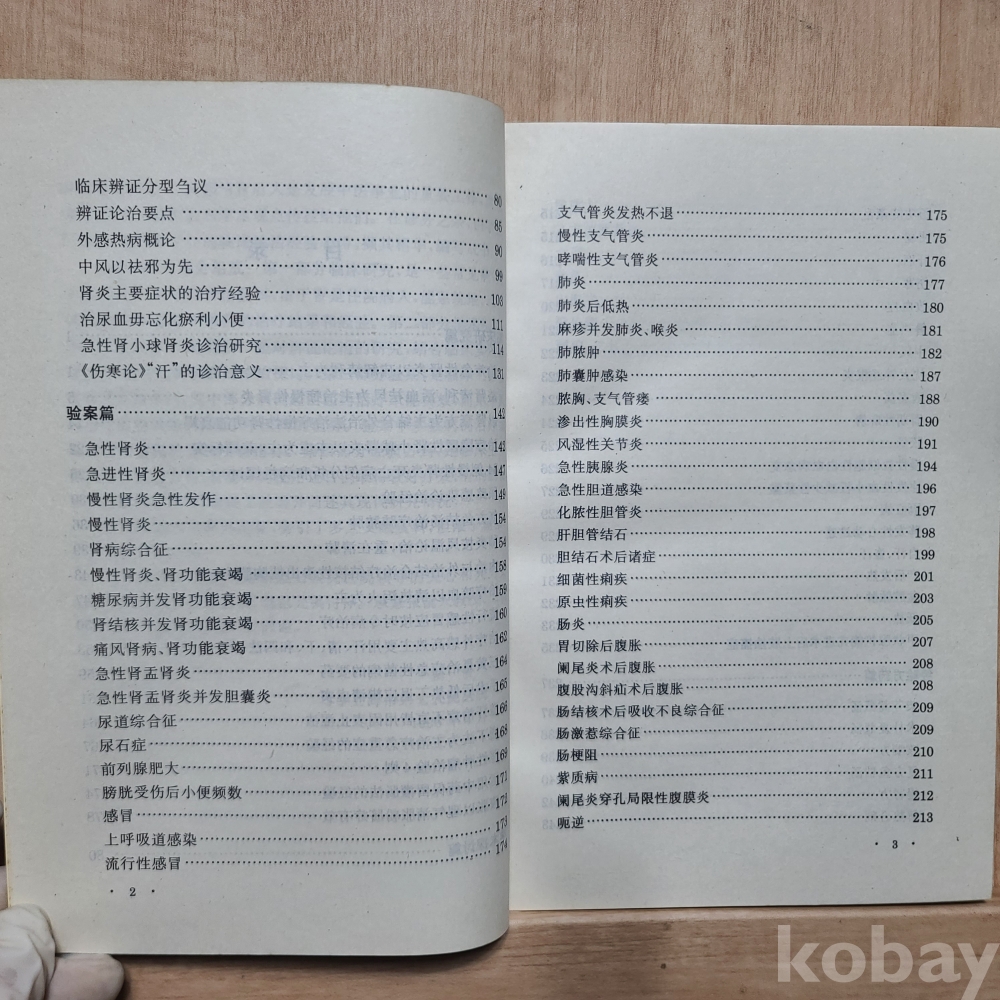 临床辨证分型刍议 80
辨证论治要点 85
外感热病概论 90
中风以祛邪为先 99
肾炎主要症状的治疗经验 103
治尿血毋忘化瘀利小便 111
急性肾小球肾炎诊治研究 114
《伤寒论》“汗”的诊治意义 131
验案篇 142
急性肾炎 142
急进性肾炎 147
慢性肾炎急性发作 149
慢性肾炎 154
肾病综合征 154
慢性肾炎、肾功能衰竭 158
糖尿病并发肾功能衰竭 159
肾结核并发肾功能衰竭 160
痛风肾病、肾功能衰竭 162
急性肾盂肾炎 164
急性肾盂肾炎并发胆囊炎 165
尿道综合征 166
尿石症 168
前列腺肥大 169
膀胱受伤后小便频数 171
感冒 172
上呼吸道感染 173
流行性感冒 174
· 2 ·
支气管炎发热不退 175
慢性支气管炎 175
哮喘性支气管炎 176
肺炎 177
肺炎后低热 180
麻疹并发肺炎、喉炎 181
肺脓肿 182
肺囊肿感染 187
脓胸、支气管瘘 188
渗出性胸膜炎 190
风湿性关节炎 191
急性胰腺炎 194
急性胆道感染 196
化脓性胆管炎 197
肝胆管结石 198
胆结石术后诸症 199
细菌性痢疾 201
原虫性痢疾 203
肠炎 205
胃切除后腹胀 207
阑尾炎术后腹胀 208
腹股沟斜疝术后腹胀 208
肠结核术后吸收不良综合征 209
肠激惹综合征 209
肠梗阻 210
紫质病 211
阑尾炎穿孔局限性腹膜炎 212
呃逆 213
· 3 ·
kobay